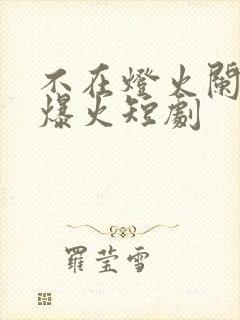 不在燈火闌
爆火短劇
羅瑩雪